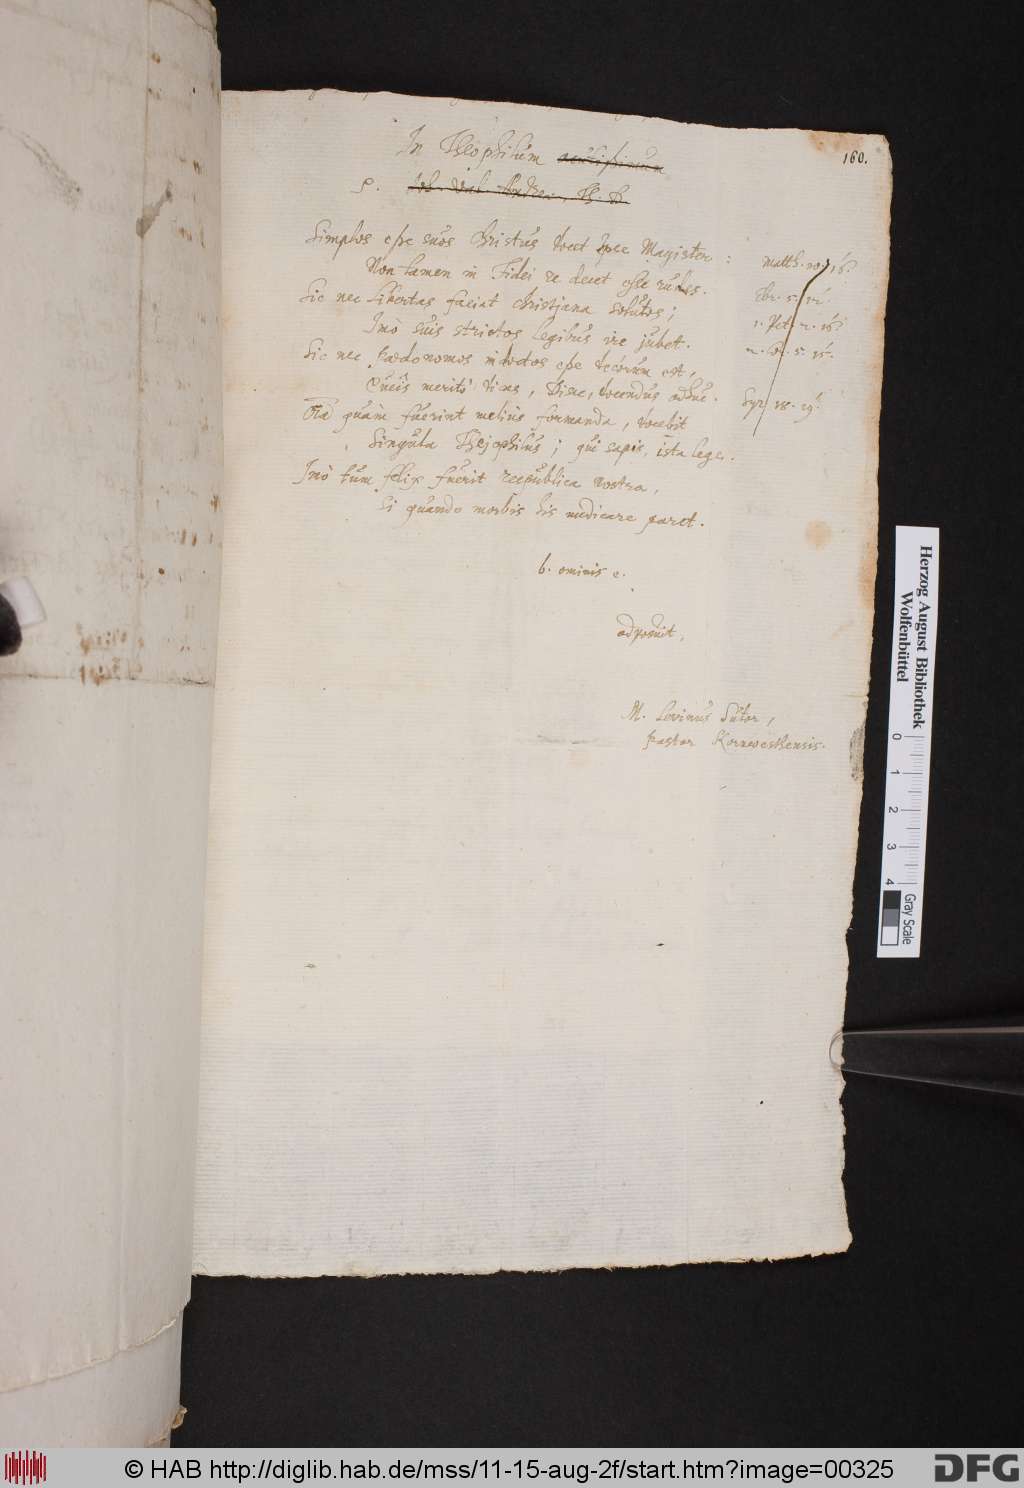 160.
In Theophilum acutissimum
S. Joh. Val. Andreæ, Th. D.
Simplos esse suos Christus docet ipse Magister: Matth. 10. 16.
Non tamen in Fidei re decet esse rudes. Ebr. 5. 12.
Sic nec Libertas faciat Christiana solutos; 1. Pet. 2. 16.
Imò suis strictos legibus ire jubet. 2. Cor. 5. 15.
Sic nec Pædonomos indoctos esse decorum est,
Queîs meritò dicas, Disce, docendus adhuc. Syr. 18. 19.
quàm fuerint meliùs formanda, docebit
Singula Theophilus; qui sapis, ista lege.
Imò tum felix fuerit respublica nostra,
Si quando morbis his medicare paret.
b. ominis e.
adposuit,
M. Levinus Sutor,
Pastor Kornwesthensis.
Herzog August Bibliothek
Wolfenbüttel
0 1 2 3 4
Gray Scale
© HAB http://diglib.hab.de/mss/11-15-aug-2f/start.htm?image=00325
DFG